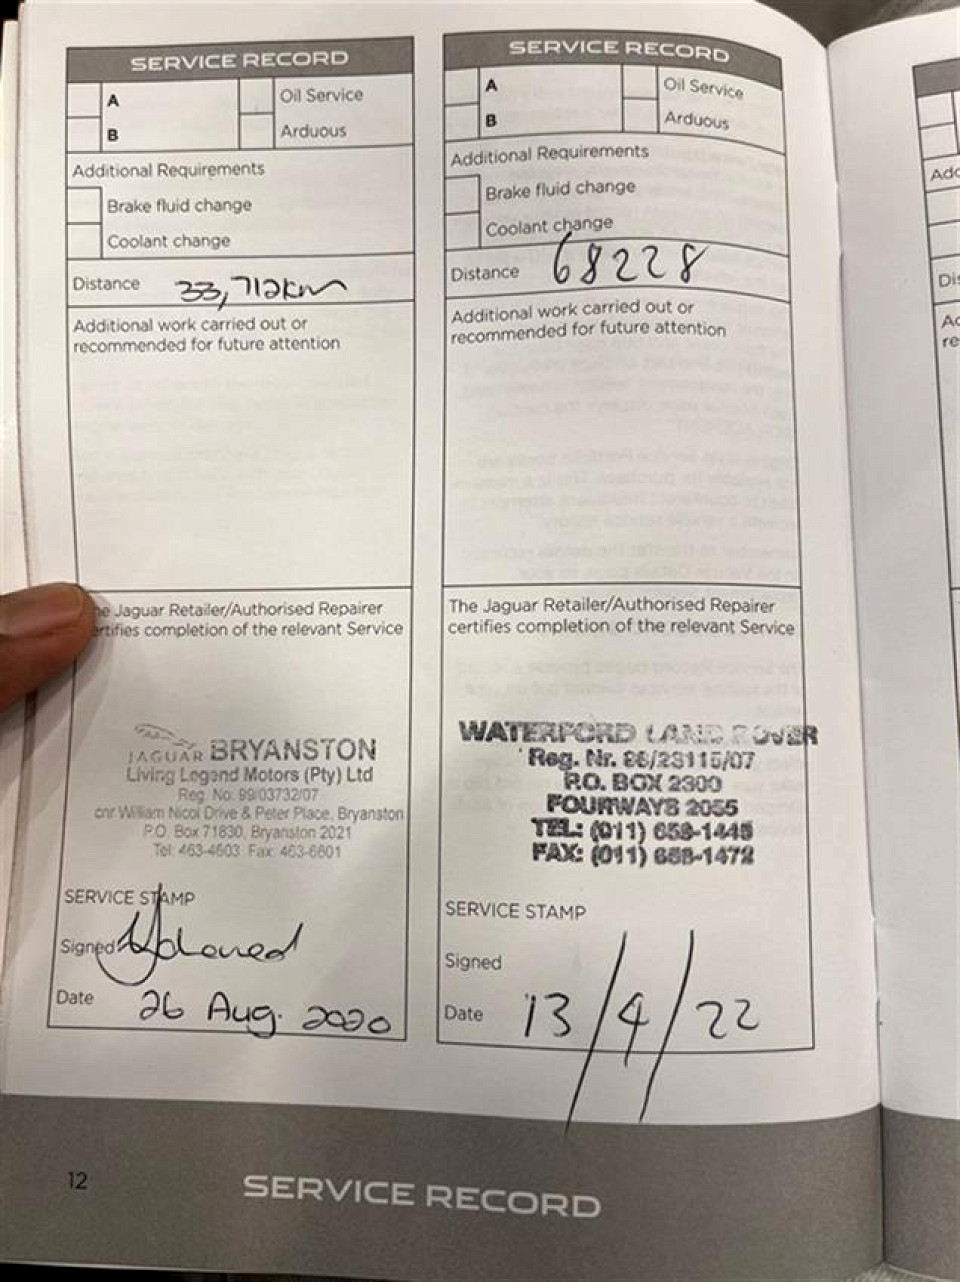 SERVICE RECORD
A
Oil Service
B
Arduous
Additional Requirements
Brake fluid change
Coolant change
Distance 33,712km
Additional work carried out or
recommended for future attention
he Jaguar Retailer/Authorised Repairer
ertifies completion of the relevant Service
JAGUAR BRYANSTON
Living Legend Motors (Pty) Ltd
Reg. No: 99/03732/07
cnr William Nicol Drive & Peter Place, Bryanston
P.O. Box 71830, Bryanston 2021
Tel: 463-4603 Fax: 463-6601
SERVICE STAMP
Signed
Date 26 Aug. 2020
SERVICE RECORD
A
Oil Service
B
Arduous
Additional Requirements
Brake fluid change
Coolant change
Distance 68228
Additional work carried out or
recommended for future attention
The Jaguar Retailer/Authorised Repairer
certifies completion of the relevant Service
WATERFORD LAND ROVER
Reg. Nr. 86/23115/07
P.O. BOX 2300
FOURWAYS 2055
TEL: (011) 658-1445
FAX: (011) 658-1472
SERVICE STAMP
Signed
Date 13/4/22
Add
Dis
Ad
re
12
SERVICE RECORD